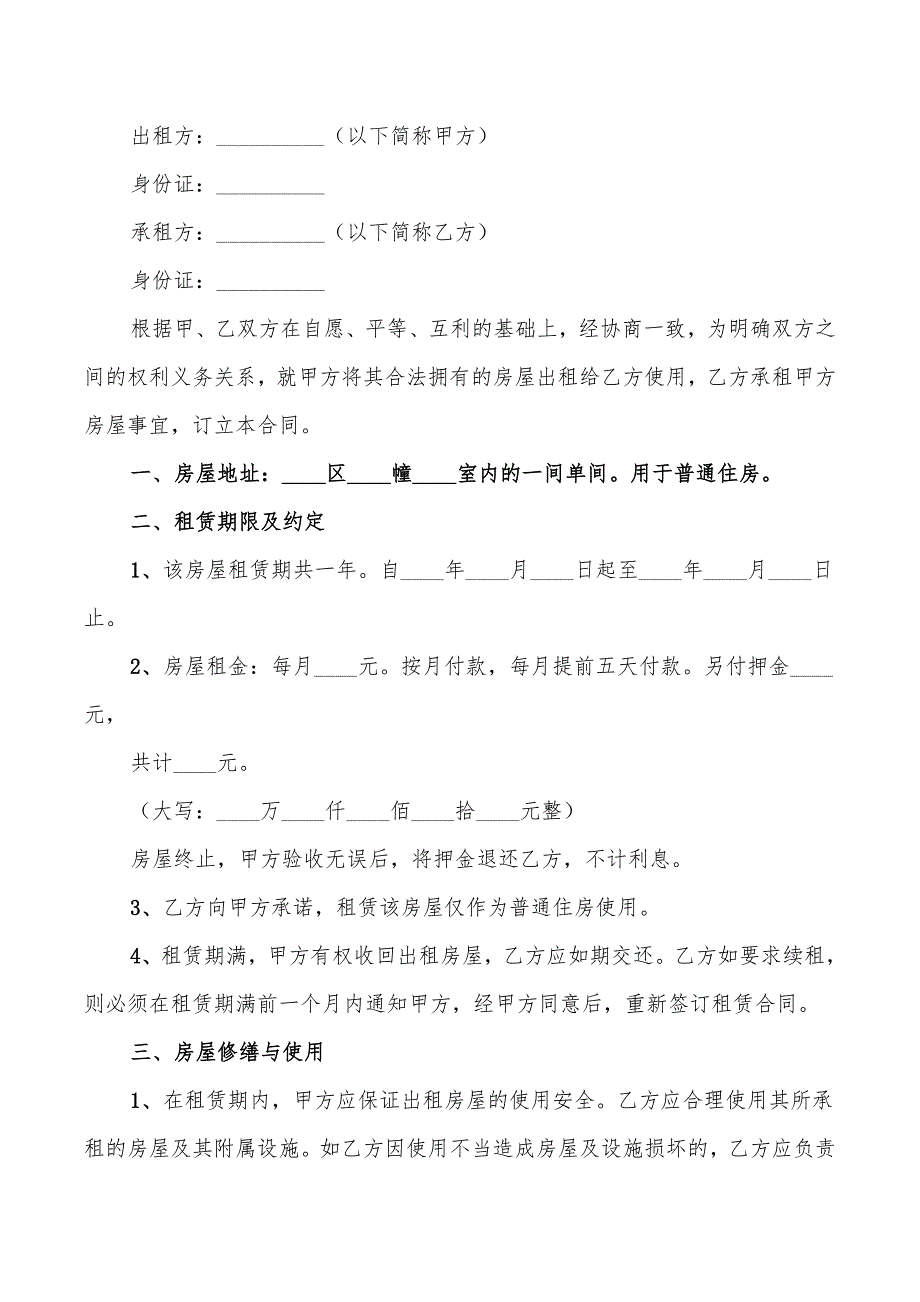 出租方：__________（以下简称甲方）
身份证：__________
承租方：__________（以下简称乙方）
身份证：__________
根据甲、乙双方在自愿、平等、互利的基础上，经协商一致，为明确双方之
间的权利义务关系，就甲方将其合法拥有的房屋出租给乙方使用，乙方承租甲方
房屋事宜，订立本合同。
一、房屋地址：____区____幢____室内的一间单间。用于普通住房。
二、租赁期限及约定
1、该房屋租赁期共一年。自____年____月____日起至____年____月____日
止。
2、房屋租金：每月____元。按月付款，每月提前五天付款。另付押金____
元，
共计____元。
（大写：____万____仟____佰____拾____元整）
房屋终止，甲方验收无误后，将押金退还乙方，不计利息。
3、乙方向甲方承诺，租赁该房屋仅作为普通住房使用。
4、租赁期满，甲方有权收回出租房屋，乙方应如期交还。乙方如要求续租，
则必须在租赁期满前一个月内通知甲方，经甲方同意后，重新签订租赁合同。
三、房屋修缮与使用
1、在租赁期内，甲方应保证出租房屋的使用安全。乙方应合理使用其所承
租的房屋及其附属设施。如乙方因使用不当造成房屋及设施损坏的，乙方应负责